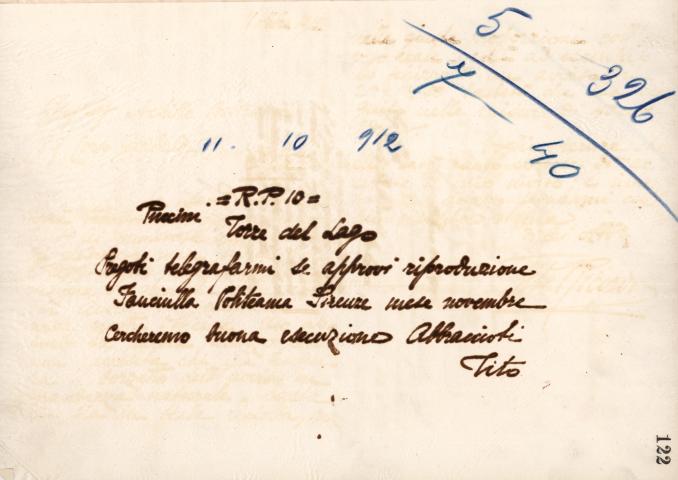 5
7
326
40
11. 10 912
=R.P. 10=
Puccini
Torre del Lago
Pregoti telegrafarmi se approvi riproduzione
Fanciulla Politeama Firenze mese novembre
Cercheremo buona esecuzione Abbraccioti
Tito
122